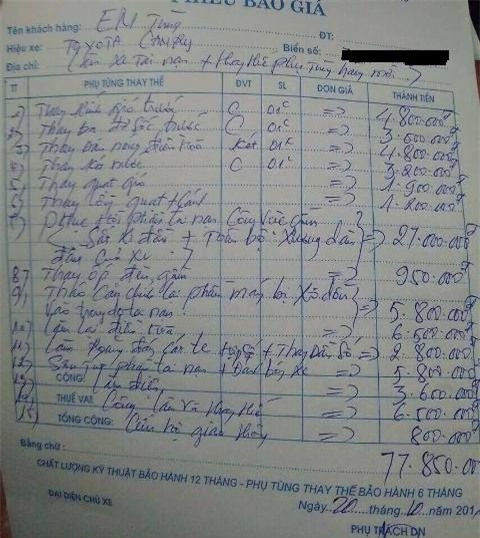 PHIẾU BÁO GIÁ
Tên khách hàng: EM Tùng ĐT:
Hiệu xe: TOYOTA CAMRY Biển số:
Địa chỉ: (Làm xe Tai nạn + thay thế phụ tùng hàng mới)
TT PHỤ TÙNG THAY THẾ ĐVT SL ĐƠN GIÁ THÀNH TIỀN
1) Thay kính gió trước C 01c => 4.800.000đ
2) Thay ba đờ sốc trước C 01c => 3.600.000đ
3) Thay dàn nóng điều hòa két 01c => 4.800.000đ
4) Thay két nước C 01c => 3.200.000đ
5) Thay quạt gió => 1.900.000đ
6) Thay lồng quạt + cánh => 1.200.000đ
7) Phục Hồi phần tai nạn Công việc gồm
( Sắt xi đầu + Toàn bộ xương dàn => 27.000.000đ
đầu của xe )
8) Thay ốp đèn gầm => 950.000đ
9) Tháo Căn chỉnh lại phần máy bị xô dồn
vào trong do tai nạn => 5.800.000đ
10) Làm lại điều hòa => 6.500.000đ
11) Làm + Thay => 2.800.000đ
12) Sơn phần tai nạn + xe => 5.800.000đ
CỘNG:
13) Làm điện => 3.600.000đ
THUẾ VAT
14) Công làm và thay thế => 6.500.000đ
15) Cứu hộ giao thông => 800.000đ
TỔNG CỘNG:
77.850.000đ
Bằng chữ:
CHẤT LƯỢNG KỸ THUẬT BẢO HÀNH 12 THÁNG - PHỤ TÙNG THAY THẾ BẢO HÀNH 6 THÁNG
Ngày 20 tháng 10 năm 201
ĐẠI DIỆN CHỦ XE PHỤ TRÁCH DN